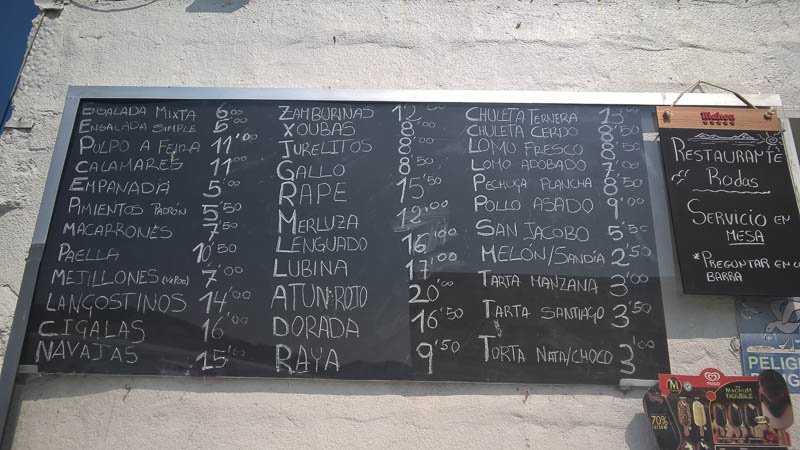 ENSALADA MIXTA 6'00
ENSALADA SIMPLE 6'00
PULPO A FEIRA 11'00
CALAMARES 11'00
EMPANADIA 5'00
PIMIENTOS PADRÓN 5'50
MACARRONES 7'00
PAELLA 10'50
MEJILLONES (VAPOR) 7'00
LANGOSTINOS 14'00
CIGALAS 16'00
NAVAJAS 15'00
ZAMBURIÑAS 12'00
XOUBAS 8'00
JURELITOS 8'00
GALLO 8'50
RAPE 15'50
MERLUZA 12'00
LENGUADO 16'00
LUBINA 17'00
ATUN ROJO 20'00
DORADA 16'50
RAYA 9'50
CHULETA TERNERA
CHULETA CERDO 8'50
LOMO FRESCO 8'50
LOMO ADOBADO 7'00
PECHUGA PLANCHA 8'50
POLLO ASADO 9'00
SAN JACOBO 5'50
MELÓN/SANDÍA 2'50
TARTA MANZANA 3'00
TARTA SANTIAGO 3'50
TORTA NATA/CHOCO 3'00
Mahou
RESTAURANTE
Rodas
SERVICIO EN
MESA
*PREGUNTAR EN
BARRA
PELIG
FRIGO
MAGNUM
DOUBLE
70%